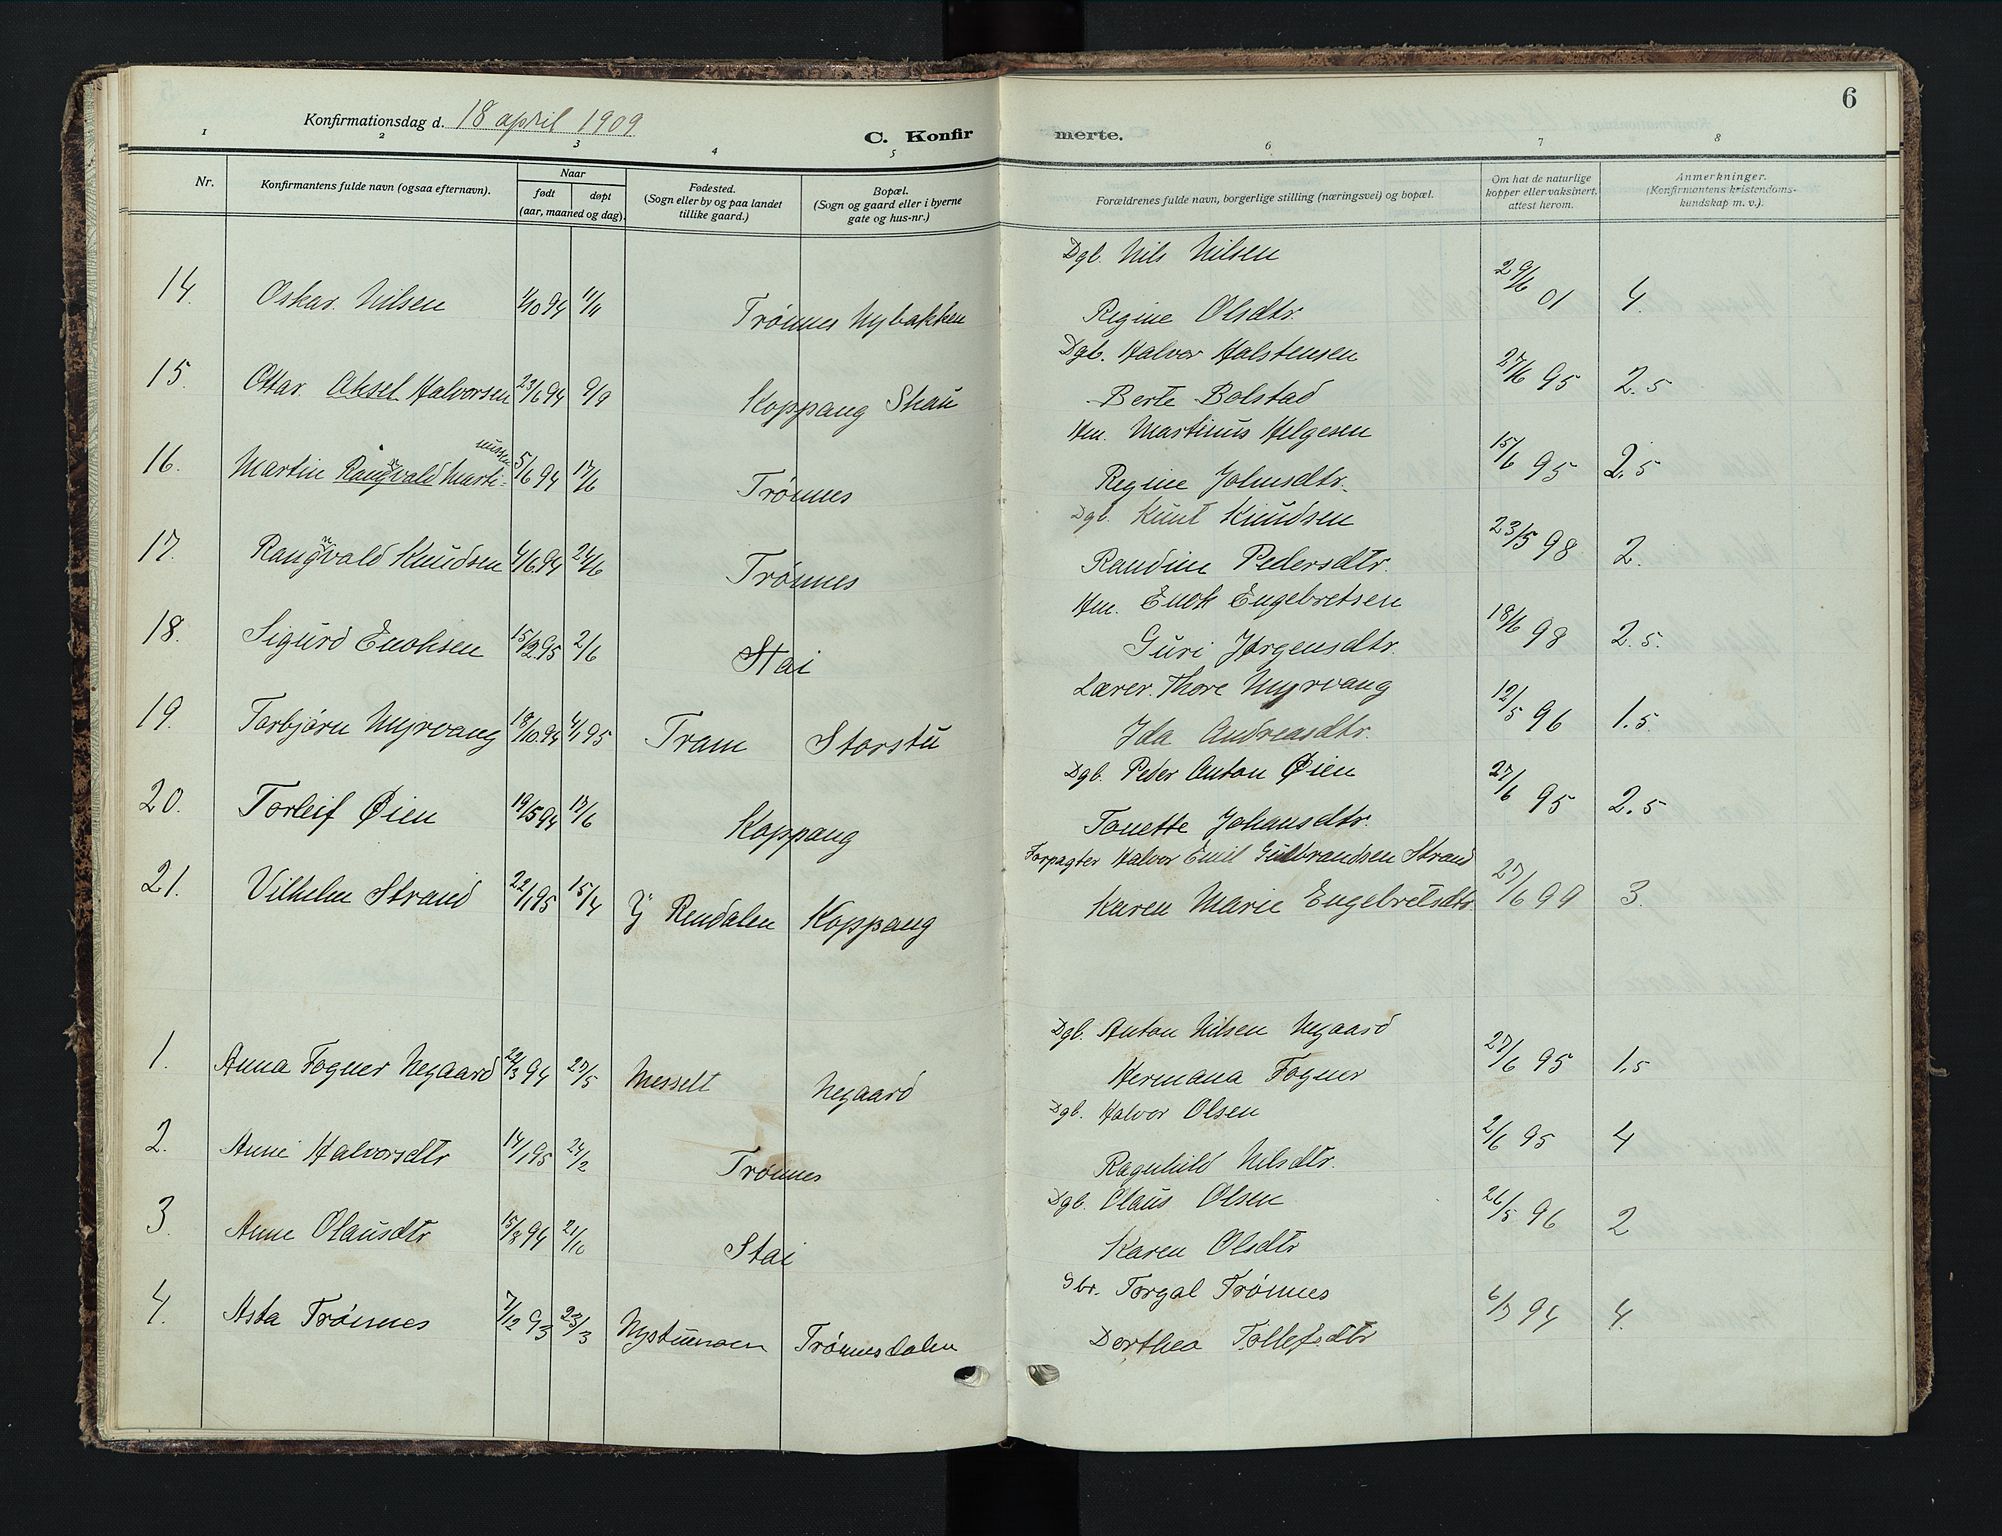 6
Konfirmationsdag d. 18 april 1909
C. Konfir merte.
1 2 3 4 5 6 7 8
Nr.
Konfirmantens fulde navn (ogsaa efternavn).
Naar
født døpt
(aar, maaned og dag).
Fødested.
(Sogn eller by og paa landet
tillike gaard.)
Bopæl.
(Sogn og gaard eller i byerne
gate og hus-nr.)
Forældrenes fulde navn, borgerlige stilling (næringsvei) og bopæl.
Om hat de naturlige
kopper eller vaksinert.
attest herom.
Anmerkninger.
(Konfirmantens kristendoms-
kundskap m. v.).
Dgb. Nils Nilsen
14. Oskar Nilsen 1/10 94 11/11 Trønnes Nybakken Regine Olsdtr. 29/6 01 4.
Dgb. Halvor Halstensen
15. Ottar Aksel Halvorsen 23/6 94 9/9 Koppang Skau Berte Bolstad 27/6 95 2.5
Hm. Martinus Helgesen
16. Martin Rangvald Marti- nussen 5/6 94 17/6 Trønnes Regine Johnsdtr. 15/6 95 2.5
Dgb. Knut Knudsen
17. Rangvald Knudsen 4/6 94 24/6 Trønnes Randine Pedersdtr. 23/5 98 2.
Hm. Enok Engebretsen
18. Sigurd Enoksen 15/2 95 2/6 Stai Guri Jørgensdtr. 18/6 98 2.5.
Lærer. Thore Myrvang
19. Torbjørn Myrvang 18/10 94 4/1 95 Tram Storstu Ida Andreasdtr. 12/5 96 1.5
Dgb. Peder Anton Øien
20. Torleif Øien 19/5 94 17/6 Koppang Tonette Johansdtr. 27/6 95 2.5
Forpagter Halvor Emil Gulbrandsen Strand
21. Vilhelm Strand 22/1 95 15/4 Y Rendalen Koppang Karen Marie Engebretsdtr. 27/6 99 3.
Dgb. Anton Nilsen Negaard
1. Anna Fogner Negaard 22/3 94 27/5 Messelt Negaard Hermana Fogner 27/6 95 1.5
Dgb. Halvor Olsen
2. Anne Halvorsdtr 14/1 95 24/2 Trønnes Ragnhild Nilsdtr. 2/6 95 4
Dgb. Olaus Olsen
3. Anne Olausdtr 15/8 94 21/10 Stai Karen Olsdtr 26/5 96 2
Gbr. Torgal Trønnes
4. Asta Trønnes 7/12 93 23/3 Nystumoen Trønnesdalen Dorthea Tollefsdtr 94 4.